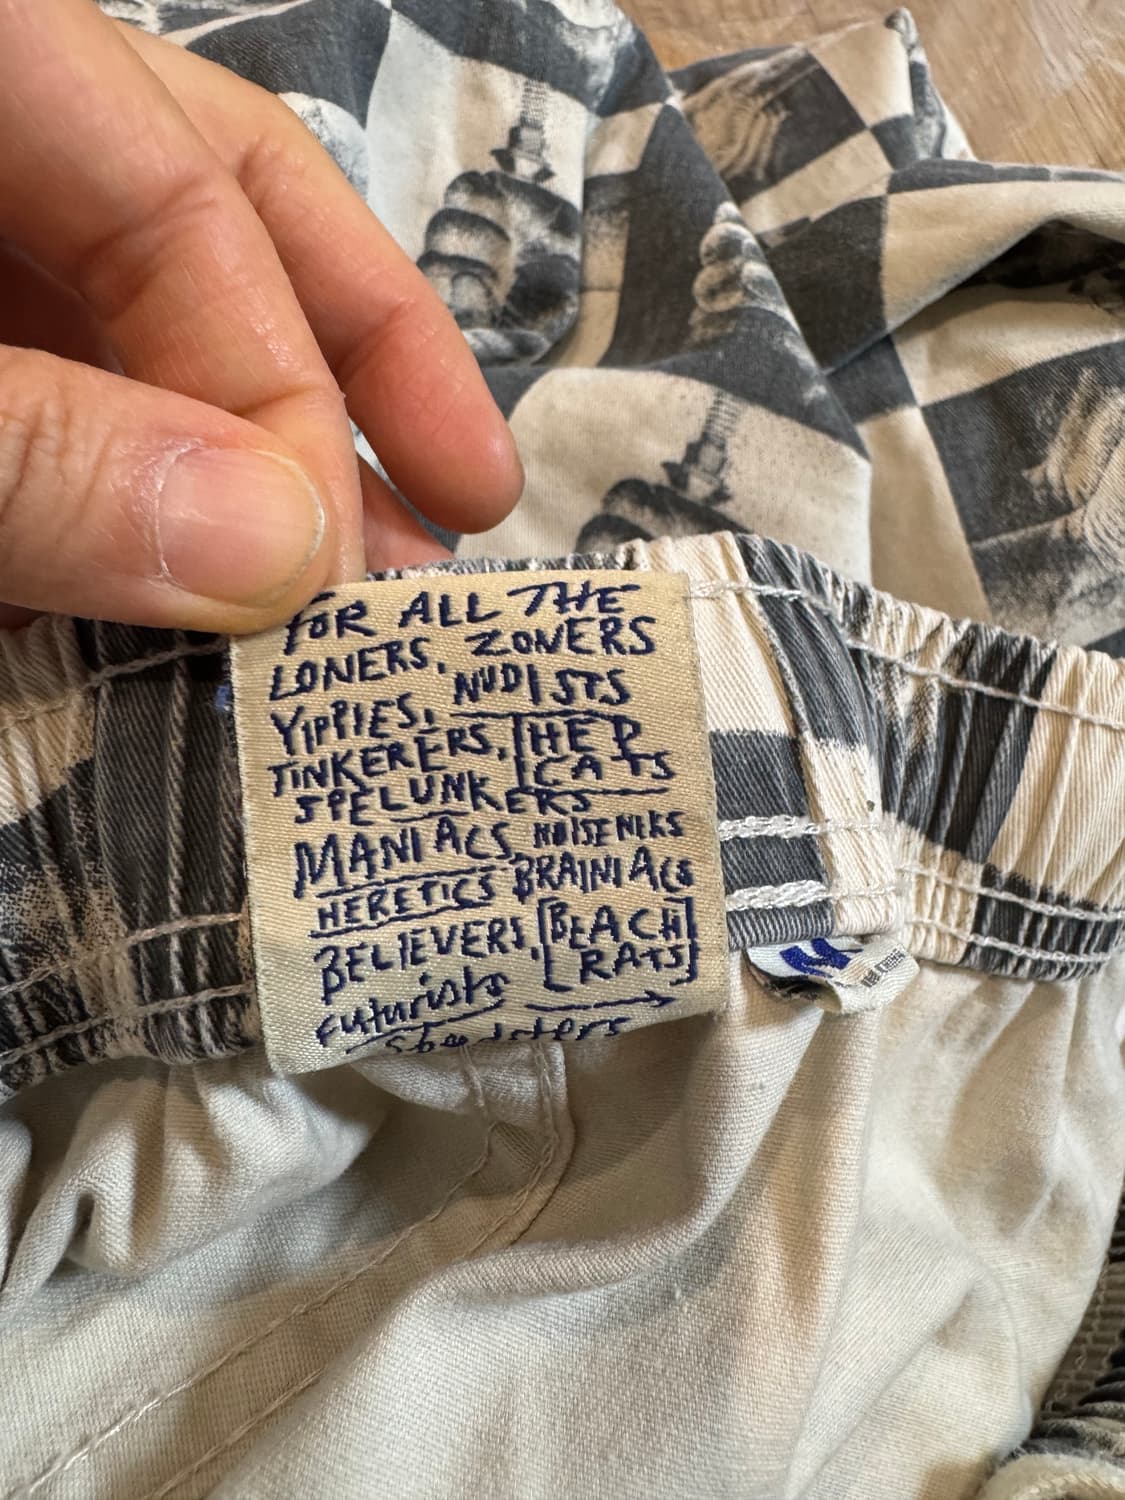 FOR ALL THE
LONERS, ZONERS
YIPPIES, NUDISTS
TINKERERS, [HEP
CATS
SPELUNKERS
MANIACS, NOISENIKS
HERETICS BRAINIACS
BELIEVERS, [BEACH
RATS]
futurists
Speedsters